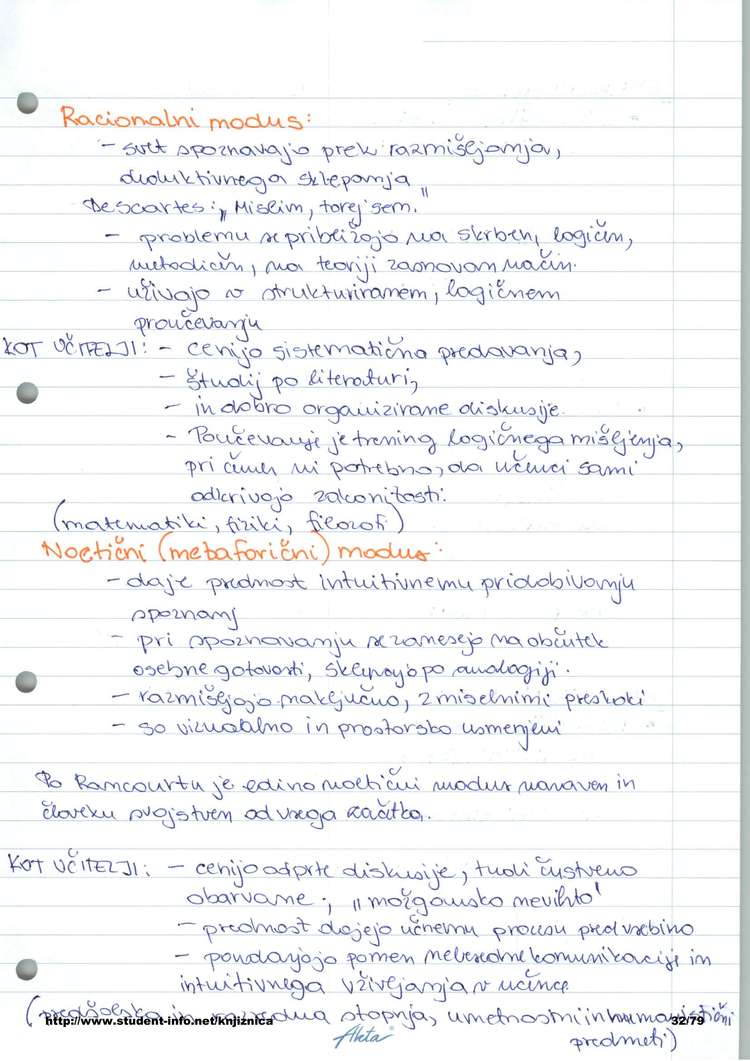 Racionalni modus:
- svet spoznavajo prek razmišljanja,
deduktivnega sklepanja
Descartes: „Mislim, torej sem."
- problemu se približajo na skrben, logičen,
metodičen, na teoriji zasnovan način.
- uživajo v strukturiranem, logičnem
proučevanju
KOT UČITELJI: - cenijo sistematična predavanja,
- študij po literaturi,
- in dobro organizirane diskusije.
- Poučevanje je trening logičnega mišljenja,
pri čemer ni potrebno, da učenci sami
odkrivajo zakonitosti.
(matematiki, fiziki, filozofi)
Noetični (metaforični) modus:
- daje prednost intuitivnemu pridobivanju
spoznanj
- pri spoznavanju se zanesejo na občutek
osebne gotovosti, sklepajo po analogiji.
- razmišljajo naključno, z miselnimi preskoki
- so vizualno in prostorsko usmerjeni
Po Rancourtu je edino noetični modus naraven in
človeku svojstven od vsega začetka.
KOT UČITELJI: - cenijo odprte diskusije, tudi čustveno
obarvane, „možgansko nevihto"
- prednost dajejo učnemu procesu pred vsebino
- poudarjajo pomen nebesedne komunikacije in
intuitivnega vživljanja v učence
(predšolska in razredna stopnja, umetnostni in humanistični
predmeti)
http://www.student-info.net/knjiznica
32/79
Aleta